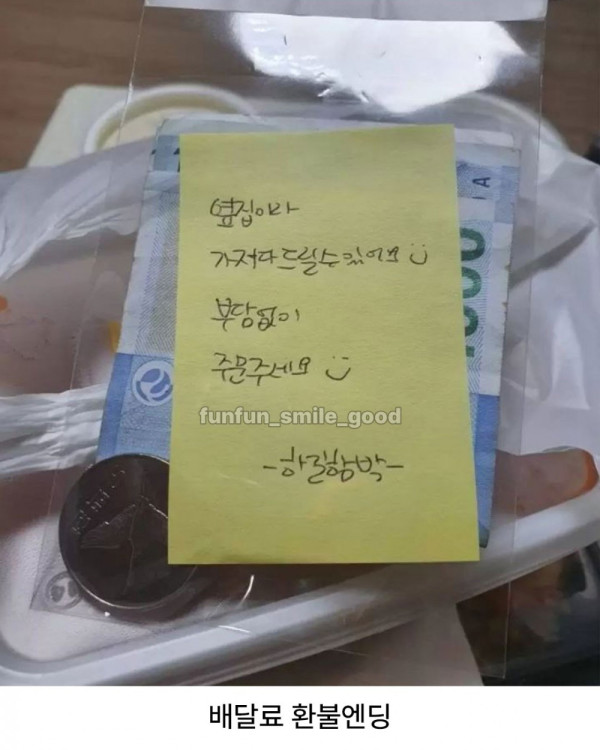 옆집이라
가저다드릴수있어요
부담없이
주문주세요
funfun_smile_good
-하릴함박-
배달료 환불엔딩